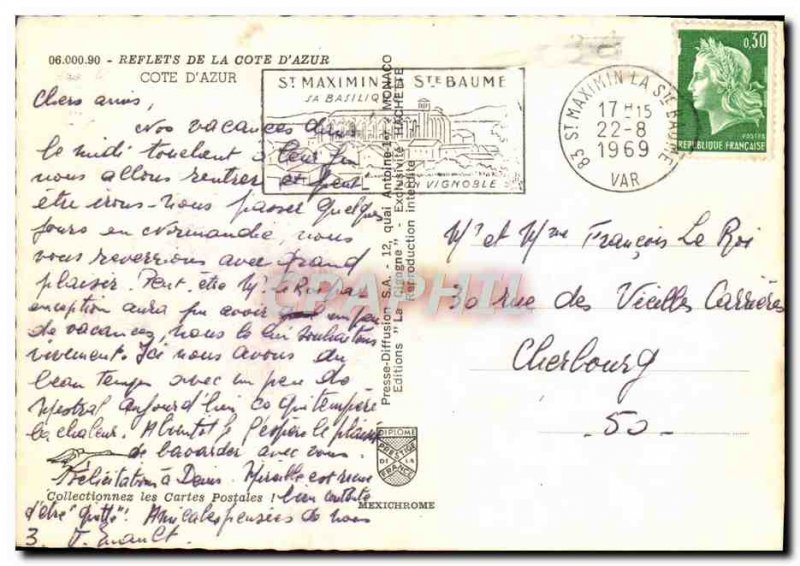 06.000.90 - REFLETS DE LA COTE D'AZUR
COTE D'AZUR
Chers amis,
Nos vacances dans
le midi touchent à leur fin
nous allons rentrer et peut
être irons-nous passer quelques
jours en Normandie, nous
vous reverrions avec grand
plaisir. Peut être Mr Le Roi
exception aura pu avoir un peu
de vacances, nous le lui souhaitons
vivement. Ici nous avons du
beau temps avec un peu de
Mistral aujourd'hui ce qui tempère
la chaleur. A bientôt j'espère le plaisir
de bavarder avec vous.
Félicitations à Denis. Mireille est
Collectionnez les Cartes Postales !
bien contente
d'être Amicales pensées de nous
3.
ST MAXIMIN STE BAUME
SA BASILIQUE
VIGNOBLE
83 ST MAXIMIN LA STE BAUME
17 H 15
22-8
1969
VAR
0,30
POSTES
REPUBLIQUE FRANÇAISE
Presse-Diffusion S.A. - 12, quai Antoine-1er - MONACO
Editions "La Cigogne" - Exclusivité HACHETTE
Reproduction interdite
CPAPHIL
Mr et Mme François Le Roi
30 rue des Vieilles Carrières
Cherbourg
-50-
DIPLOME
PRESTIGE
DE LA
FRANCE
MEXICHROME